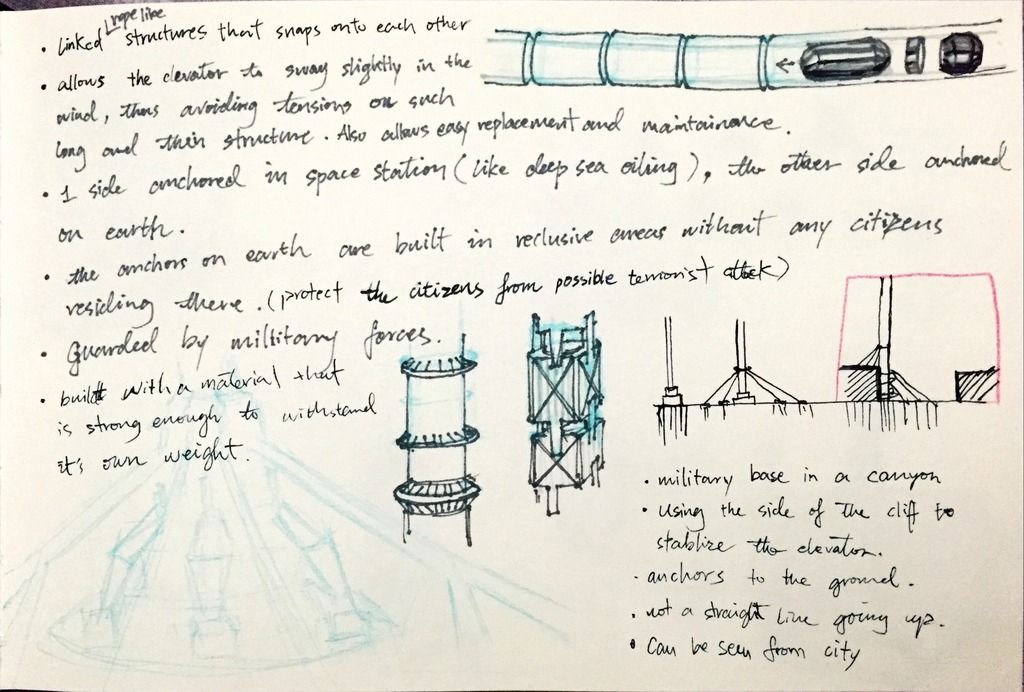 • linked rope like structures that snaps onto each other
• allows the elevator to sway slightly in the
wind, thus avoiding tensions on such
long and thin structure. Also allows easy replacement and maintainance.
• 1 side anchored in space station (like deep sea oiling), the other side anchored
on earth.
• the anchors on earth are built in reclusive areas without any citizens
residing there. (protect the citizens from possible terrorist attack)
• Guarded by millitary forces.
• built with a material that
is strong enough to withstand
it's own weight.
• military base in a canyon
• Using the side of the cliff to
stablize the elevator.
• anchors to the ground.
• not a straight line going up.
• Can be seen from city